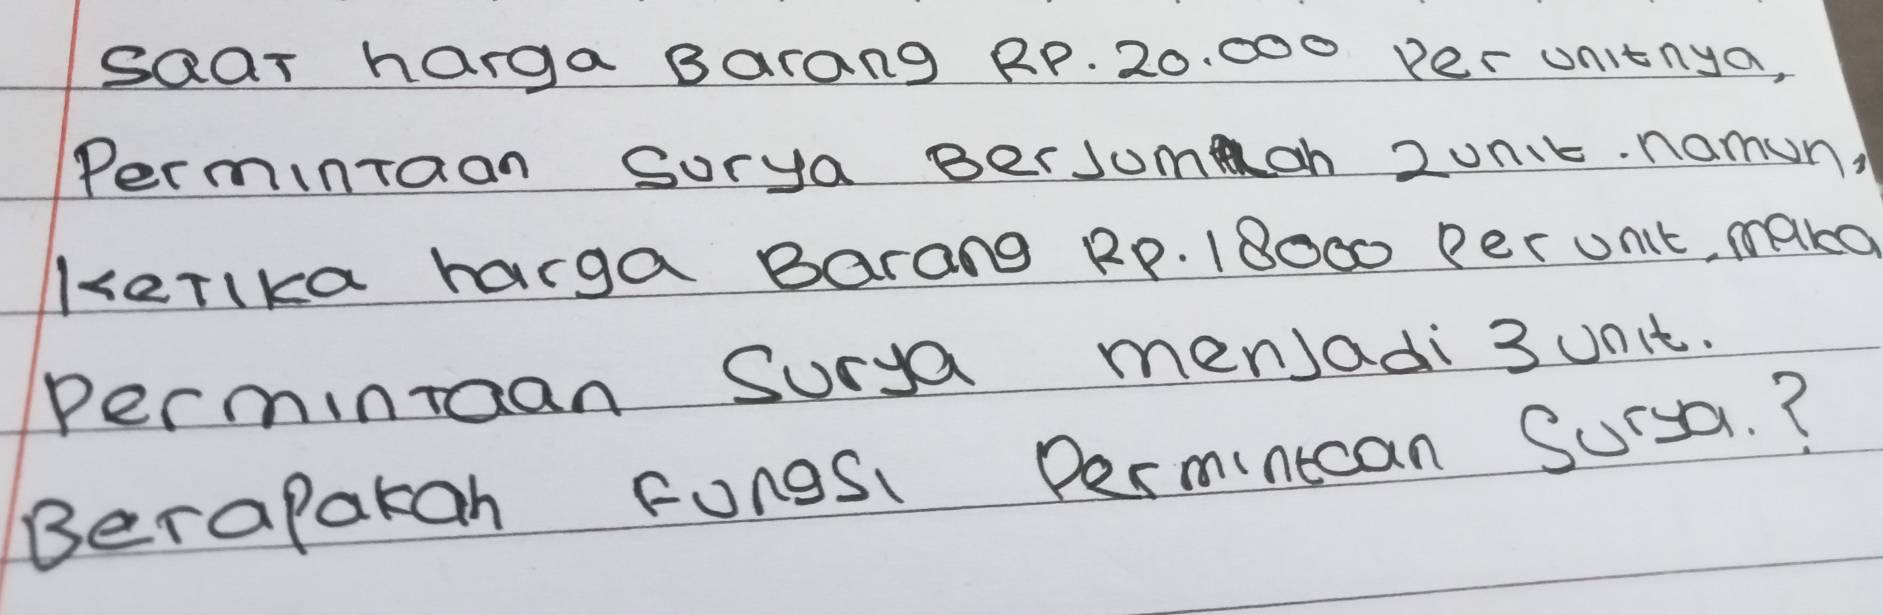 Saat harga Barang RP. 20.000 Per unitnya,
Permintaan Surya Berjumlah 2 unit. namun,
Ketika harga Barang Rp. 18000 Per unit, maka
Permintaan Surya menjadi 3 unit.
Berapakah Fungsi Permintaan Surya.?